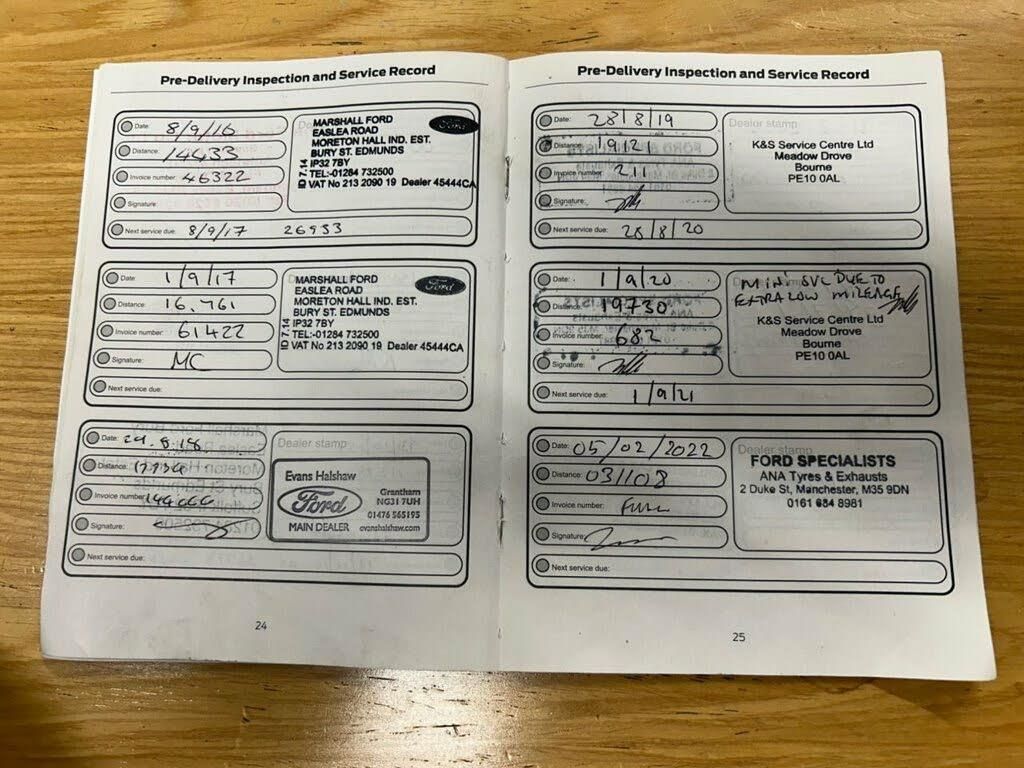 Pre-Delivery Inspection and Service Record
Date: 8/9/16
Distance: 14433
Invoice number: 46322
Signature:
Next service due: 8/9/17 26933
MARSHALL FORD
EASLEA ROAD
MORETON HALL IND. EST.
BURY ST. EDMUNDS
IP32 7BY
TEL:-01284 732500
VAT No 213 2090 19 Dealer 45444CA
ID 7.14
Ford
Date: 1/9/17
Distance: 16,761
Invoice number: 61422
Signature: MC
Next service due:
MARSHALL FORD
EASLEA ROAD
MORETON HALL IND. EST.
BURY ST. EDMUNDS
IP32 7BY
TEL:-01284 732500
VAT No 213 2090 19 Dealer 45444CA
ID 7.14
Ford
Date: 29.8.18
Distance:
Invoice number:
Signature:
Next service due:
Dealer stamp
Evans Halshaw
Ford
MAIN DEALER
Grantham
NG31 7UH
01476 565195
evanshalshaw.com
24
Pre-Delivery Inspection and Service Record
Date: 28/8/19
Distance: 19121
Invoice number: 211
Signature:
Next service due: 28/8/20
Dealer stamp
K&S Service Centre Ltd
Meadow Drove
Bourne
PE10 0AL
Date: 1/9/20
Distance: 19730
Invoice number: 682
Signature:
Next service due: 1/9/21
MINI SVC DUE TO
EXTRA LOW MILEAGE
K&S Service Centre Ltd
Meadow Drove
Bourne
PE10 0AL
Date: 05/02/2022
Distance: 031108
Invoice number: FULL
Signature:
Next service due:
Dealer stamp
FORD SPECIALISTS
ANA Tyres & Exhausts
2 Duke St, Manchester, M35 9DN
0161 684 8981
25